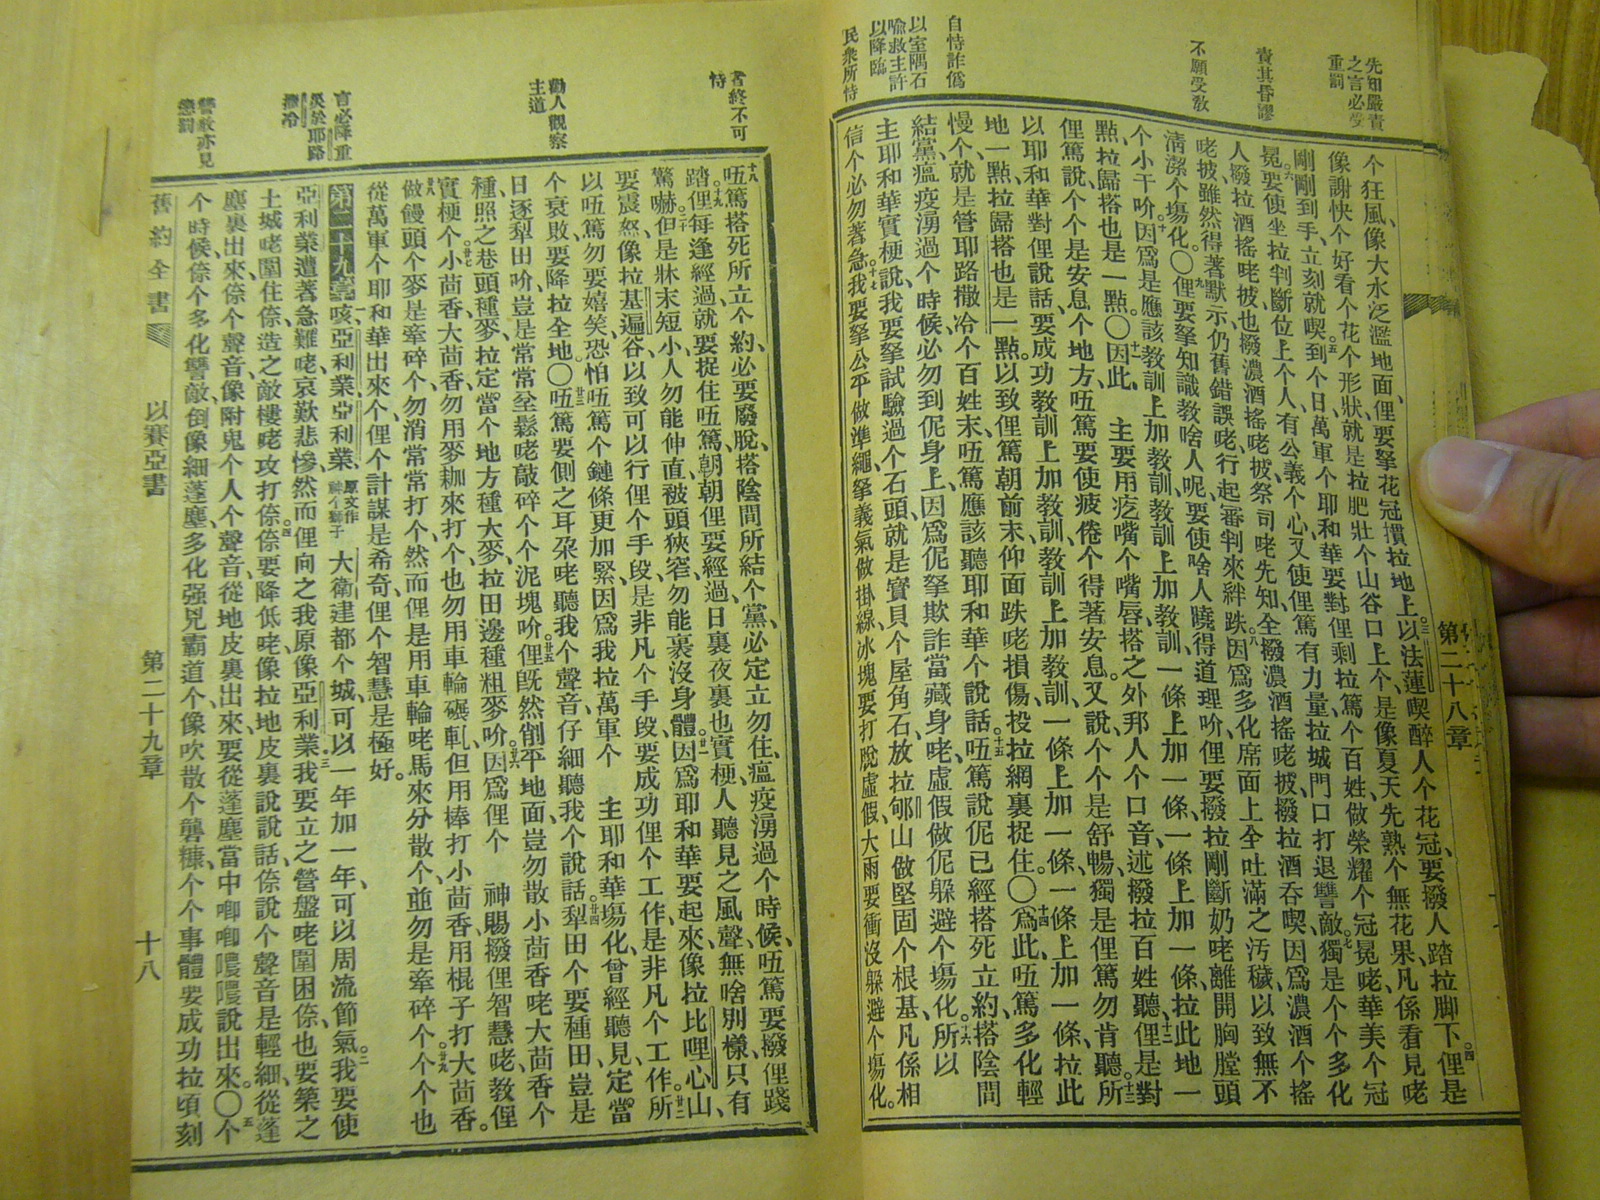 先知嚴責
之言必受
重罰
責其昏謬
不願受敎
自恃詐僞
以室隅石
喩救主許
以降臨
民衆所恃
第二十八章
个狂風、像大水泛濫地面、俚要拏花冠摜拉地上、三以法蓮喫醉人个花冠、要撥人踏拉脚下。四俚是
像謝快个好看个花个形狀、就是拉肥壯个山谷口上个、是像夏天先熟个無花果、凡係看見咾
剛剛到手、立刻就喫。五到个日、萬軍个耶和華、要對俚剩拉篤个百姓、做榮耀个冠冕咾華美个冠
冕。六要使坐拉判斷位上个人、有公義个心、又使俚篤有力量、拉城門口打退讐敵。七獨是个个多化
人、撥拉酒搖咾披、也撥濃酒搖咾披、祭司咾先知、全撥濃酒搖咾披、撥拉酒吞喫、因爲濃酒个搖
咾披、雖然得著默示、仍舊錯誤咾、行起審判來絆跌。八因爲多化席面上、全吐滿之汚穢、以致無不
淸潔个塲化。〇九俚要拏知識敎啥人呢、要使啥人曉得道理吤、俚要撥拉剛斷奶咾離開胸膛頭
个小干吤。十因爲是應該敎訓上加敎訓、敎訓上加敎訓、一條上加一條、一條上加一條、拉此地一
點、拉歸搭也是一點。〇十一因此 主要用疙嘴个嘴唇、搭之外邦人个口音、述撥拉百姓聽。十二俚是對
俚篤說、个个是安息个地方、吤篤要使疲倦个得著安息、又說、个个是舒暢、獨是俚篤勿肯聽。十三所
以耶和華對俚說話、要成功敎訓上加敎訓、敎訓上加敎訓、一條上加一條、一條上加一條、拉此
地一點、拉歸搭也是一點、以致俚篤朝前末、仰面跌咾損傷、投拉網裏捉住。〇十四爲此、吤篤多化輕
慢个、就是管耶路撒冷个百姓末、吤篤應該聽耶和華个說話。十五吤篤說、伲已經搭死立約、搭陰間
結黨、瘟疫湧過个時候、必勿到伲身上、因爲伲拏欺詐當藏身咾、虛假做伲躱避个塲化。十六所以
主耶和華實梗說、我要拏試驗過个石頭、就是寶貝个屋角石、放拉郇山做堅固个根基、凡係相
信个必勿著急。十七我要拏公平做準繩、拏義氣做掛線、冰塊要打脫虛假、大雨要衝沒躱避个塲化。
耆終不可
恃
勸人觀察
主道
言必降重
災於耶路
撒冷
讐敵亦見
懲罰
十八吤篤搭死所立个約、必要廢脫、搭陰間所結个黨、必定立勿住、瘟疫湧過个時候、吤篤要撥俚踐
踏。十九俚每逢經過、就要捉住吤篤、朝朝俚要經過、日裏夜裏也實梗、人聽見之風聲、無啥別樣、只有
驚嚇。二十但是牀末短、小人勿能伸直、被頭狹窄、勿能裹沒身體。廿一因爲耶和華要起來、像拉比哩心山、
要震怒像拉基遍谷、以致可以行俚个手段、是非凡个手段、要成功俚个工作、是非凡个工作。廿二所
以吤篤勿要嬉笑、恐怕吤篤个鏈條更加緊、因爲我拉萬軍个 主耶和華塲化、曾經聽見、定當
个衰敗、要降拉全地〇廿三吤篤要側之耳朶咾聽我个聲音、仔細聽我个說話。廿四犁田个要種田、豈是
日逐犁田吤、豈是常常坌鬆咾敲碎个个泥塊吤。廿五俚旣然削平地面、豈勿散小茴香咾大茴香、
種、照之巷頭種麥、拉定當个地方種大麥、拉田邊種粗麥吤。廿六因爲俚个 神賜撥俚智慧咾、敎俚
實梗个。廿七小茴香、大茴香、勿用麥耞來打个、也勿用車輪碾軋、但用棒打小茴香、用棍子打大茴香。
廿八做饅頭个麥、是牽碎个、勿消常常打个、然而俚是用車輪咾馬來分散个、並勿是牽碎个。廿九个个也
從萬軍个耶和華出來个、俚个計謀是希奇、俚个智慧是極好。
第二十九章 一咳、亞利業、亞利業、原文作神个獅子 大衛建都个城、可以一年加一年、可以周流節氣。二我要使
亞利業遭著急難咾、哀歎悲慘、然而俚向之我、原像亞利業。三我要立之營盤咾圍困㑚、也要築之
土城咾圍住㑚、造之敵樓咾攻打㑚。四㑚要降低咾、像拉地皮裏說說話、㑚說个聲音是輕細、從蓬
塵裏出來、㑚个聲音、像附鬼个人个聲音、從地皮裏出來、要從蓬塵當中唧唧噥噥說出來。〇五个
个時候、㑚个多化讐敵、倒像細蓬塵、多化强兇霸道个、像吹散个礱糠、个个事體、要成功拉頃刻
舊約全書
以賽亞書
第二十九章
十八